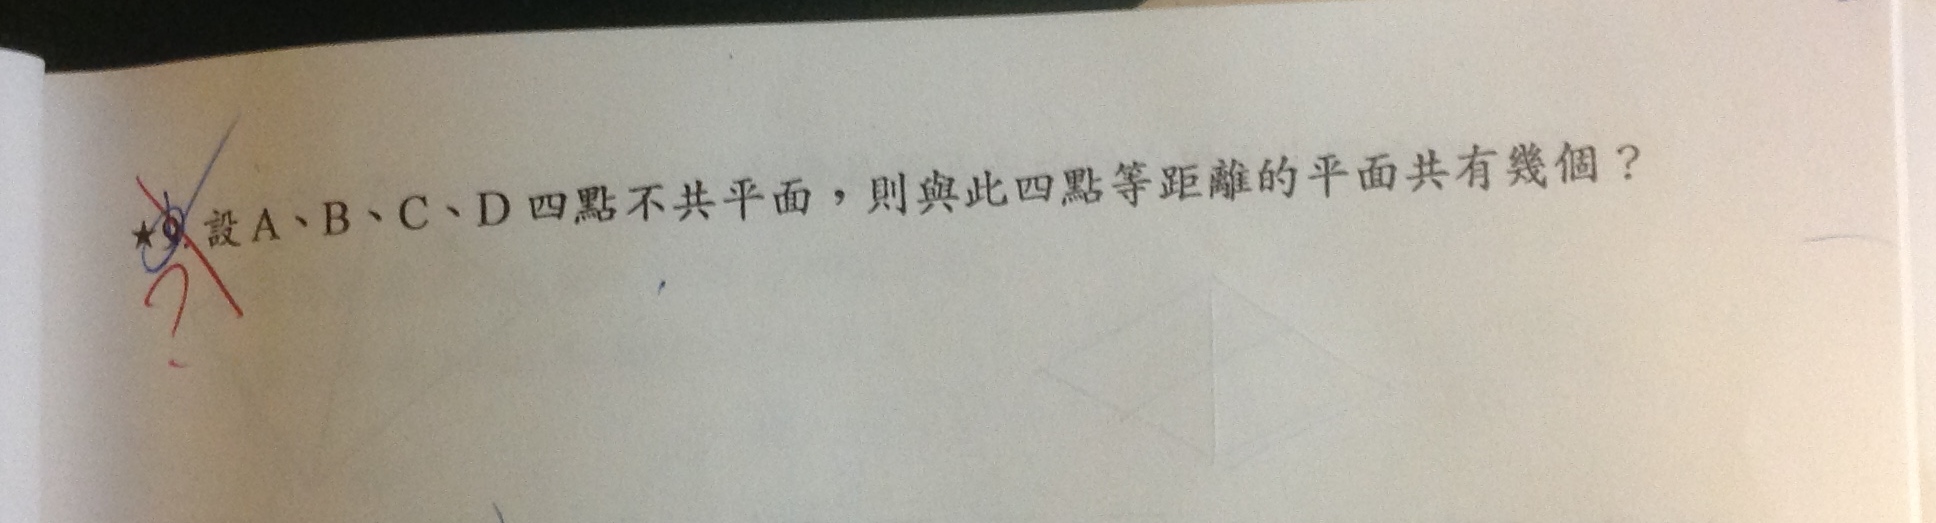 ★9. 設A、B、C、D四點不共平面，則與此四點等距離的平面共有幾個？
?